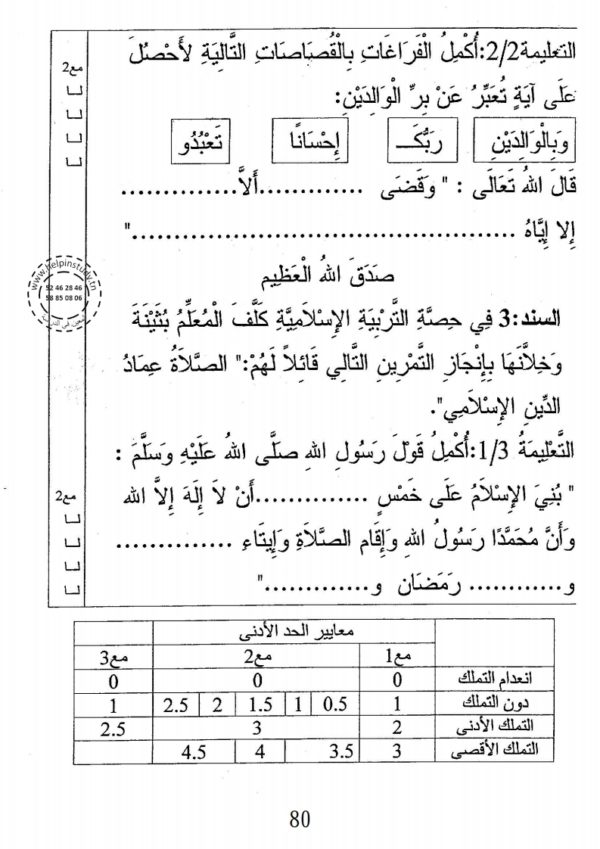 التعليمة2/2:أُكْمِلُ الْفَرَاغَاتِ بِالْقُصَاصَاتِ التَّالِيَةِ لأَحْصُلَ
مع2
عَلَى آيَةٍ تُعَبِّرُ عَنْ بِرِّ الْوَالِدَيْنِ:
وَبِالْوَالِدَيْنِ رَبُّكَـ إِحْسَانًا تَعْبُدُو
قَالَ اللهُ تَعَالَى : " وَقَضَى .............أَلاَّ..............
إِلا إِيَّاهُ ............................................"
صَدَقَ اللهُ الْعَظِيم
www.helpinstudy.tn
52 46 28 46
58 85 08 06
السند:3 فِي حِصَّةِ التَّرْبِيَةِ الإِسْلاَمِيَّةِ كَلَّفَ الْمُعَلِّمُ بُثَيْنَةَ
وَخِلاَّنَهَا بِإِنْجَازِ التَّمْرِينِ التَّالِي قَائِلاً لَهُمْ:" الصَّلاَةُ عِمَادُ
الدِّينِ الإِسْلاَمِي".
التَّعْلِيمَةُ 1/3:أُكْمِلُ قَوْلَ رَسُولِ اللهِ صَلَّى اللهُ عَلَيْهِ وَسَلَّمَ :
مع2
" بُنِيَ الإِسْلاَمُ عَلَى خَمْسٍ .............أَنْ لاَ إِلَهَ إِلاَّ الله
وَأَنَّ مُحَمَّدًا رَسُولُ اللهِ وَإِقَامِ الصَّلاَةِ وَإِيتَاءِ ..............
و............ رَمَضَان و............."
معايير الحد الأدنى
مع1 مع2 مع3
انعدام التملك 0 0 0
دون التملك 1 0.5 1 1.5 2 2.5 1
التملك الأدنى 2 3 2.5
التملك الأقصى 3 3.5 4 4.5
80